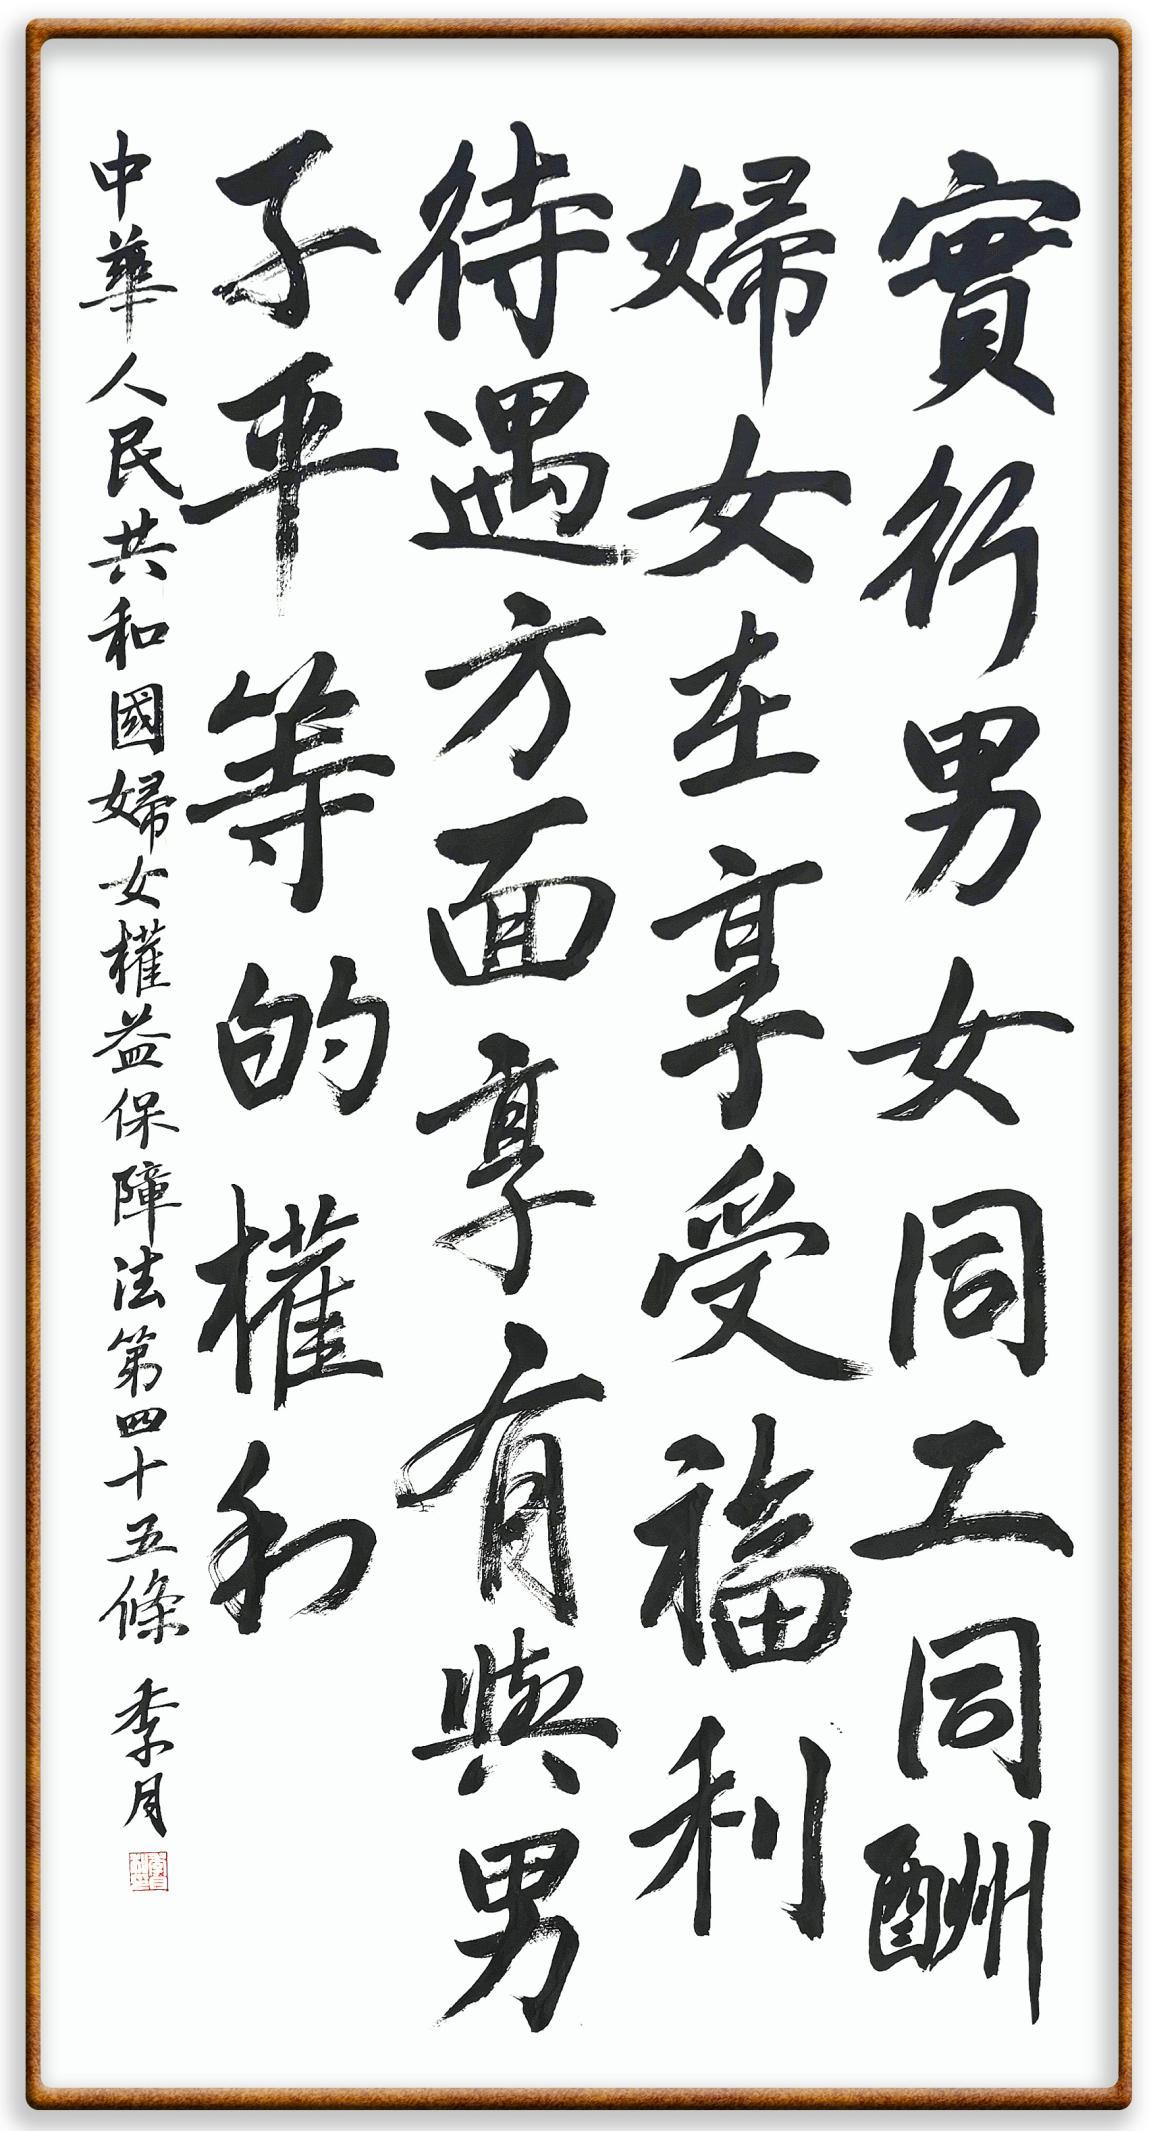 實行男女同工同酬
婦女在享受福利
待遇方面享有與男
子平等的權利
中華人民共和國婦女權益保障法第四十五條 季月